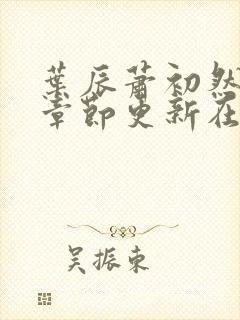 葉辰蕭初然
章節更新在
吴振東